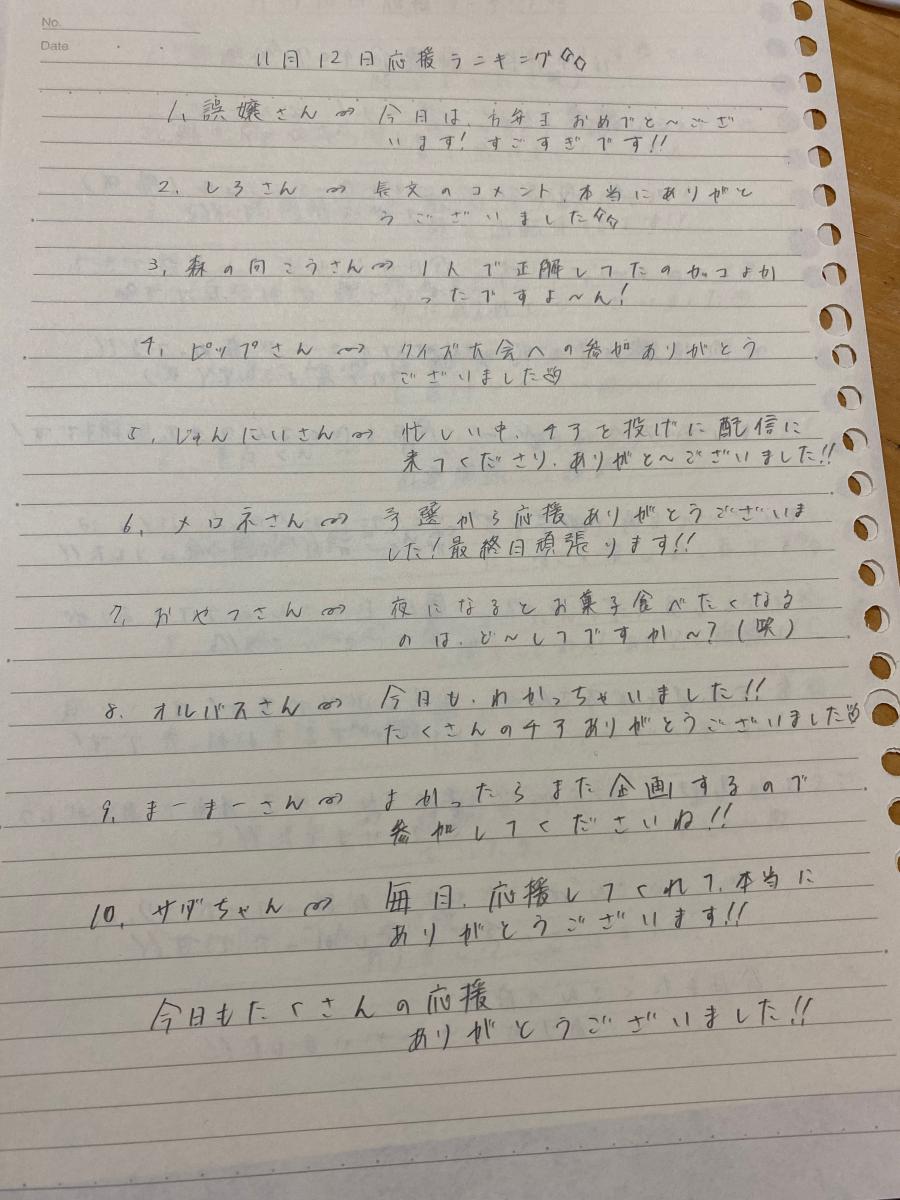 No.
Date
11月12日応援ランキング
1, 誤嬢さん ⇝ 今日は、方弁王おめでと〜ござ
います! すごすぎです!!
2, しろさん ⇝ 長文のコメント、本当にありがと
うございました
3, 森の向こうさん ⇝ 1人で正解してたのカッコよか
ったですよ〜ん!
4, ピップさん ⇝ クイズ大会への参加ありがとう
ございました
5, じゅんにいさん ⇝ 忙しい中、チアを投げに配信に
来てくださり、ありがと〜ございました!!
6, メロネさん ⇝ 予選から応援ありがとうございま
した! 最終日頑張ります!!
7, おやつさん ⇝ 夜になるとお菓子食べたくなる
のは、ど〜してですか〜? (笑)
8, オルバスさん ⇝ 今日も、わかっちゃいました!!
たくさんのチアありがとうございました
9, まーまーさん ⇝ よかったらまた企画するので
参加してくださいね!!
10, サダちゃん ⇝ 毎日、応援してくれて、本当に
ありがとうございます!!
今日もたくさんの応援
ありがとうございました!!